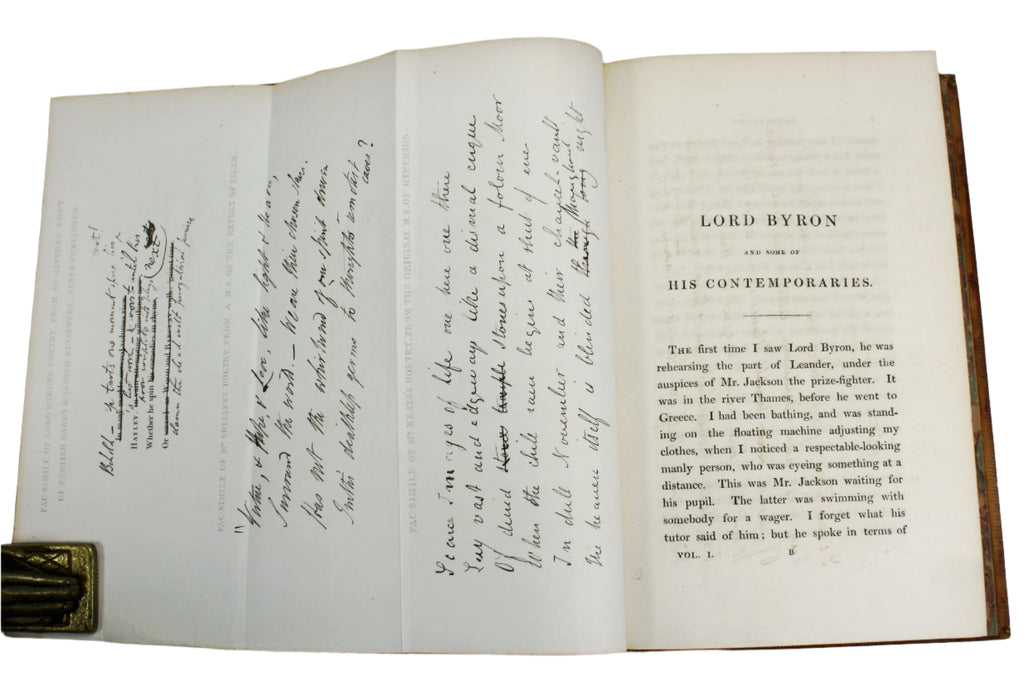 FAC-SIMILE OF LORD BYRON'S POETRY, FROM AN ALTERED COPY
OF ENGLISH BARDS & SCOTCH REVIEWERS, AFTER PUBLISHED.
Behold – ye tarts one moment spare
text!
HAYLEY's last work, & worst until his
next
Whether he spin poor couplets into plays
Or damn the dead with purgatorial praise
FAC-SIMILE OF MR SHELLEY'S POETRY, FROM A M.S. OF THE REVOLT OF ISLAM.
"Virtue, & Hope, & Love, like light & Heaven,
Surround the world. – We are their chosen slaves.
Has not the whirlwind of your spirit driven
Truth's deathless germs to thought's remotest
caves?
FAC-SIMILE OF MR KEATS'S POETRY, FROM THE ORIGINAL M.S. OF HYPERION.
Scarce images of life one here one there
Lay vast and edgeways like a dismal cirque
Of druid stones upon a forlorn Moor
When the chill rain begins at shut of eve
In dull November and their chancel vault
the heaven itself is blinded throughout night
LORD BYRON
AND SOME OF
HIS CONTEMPORARIES.
THE first time I saw Lord Byron, he was
rehearsing the part of Leander, under the
auspices of Mr. Jackson the prize-fighter. It
was in the river Thames, before he went to
Greece. I had been bathing, and was stand-
ing on the floating machine adjusting my
clothes, when I noticed a respectable-looking
manly person, who was eyeing something at a
distance. This was Mr. Jackson waiting for
his pupil. The latter was swimming with
somebody for a wager. I forget what his
tutor said of him; but he spoke in terms of
VOL. I. B